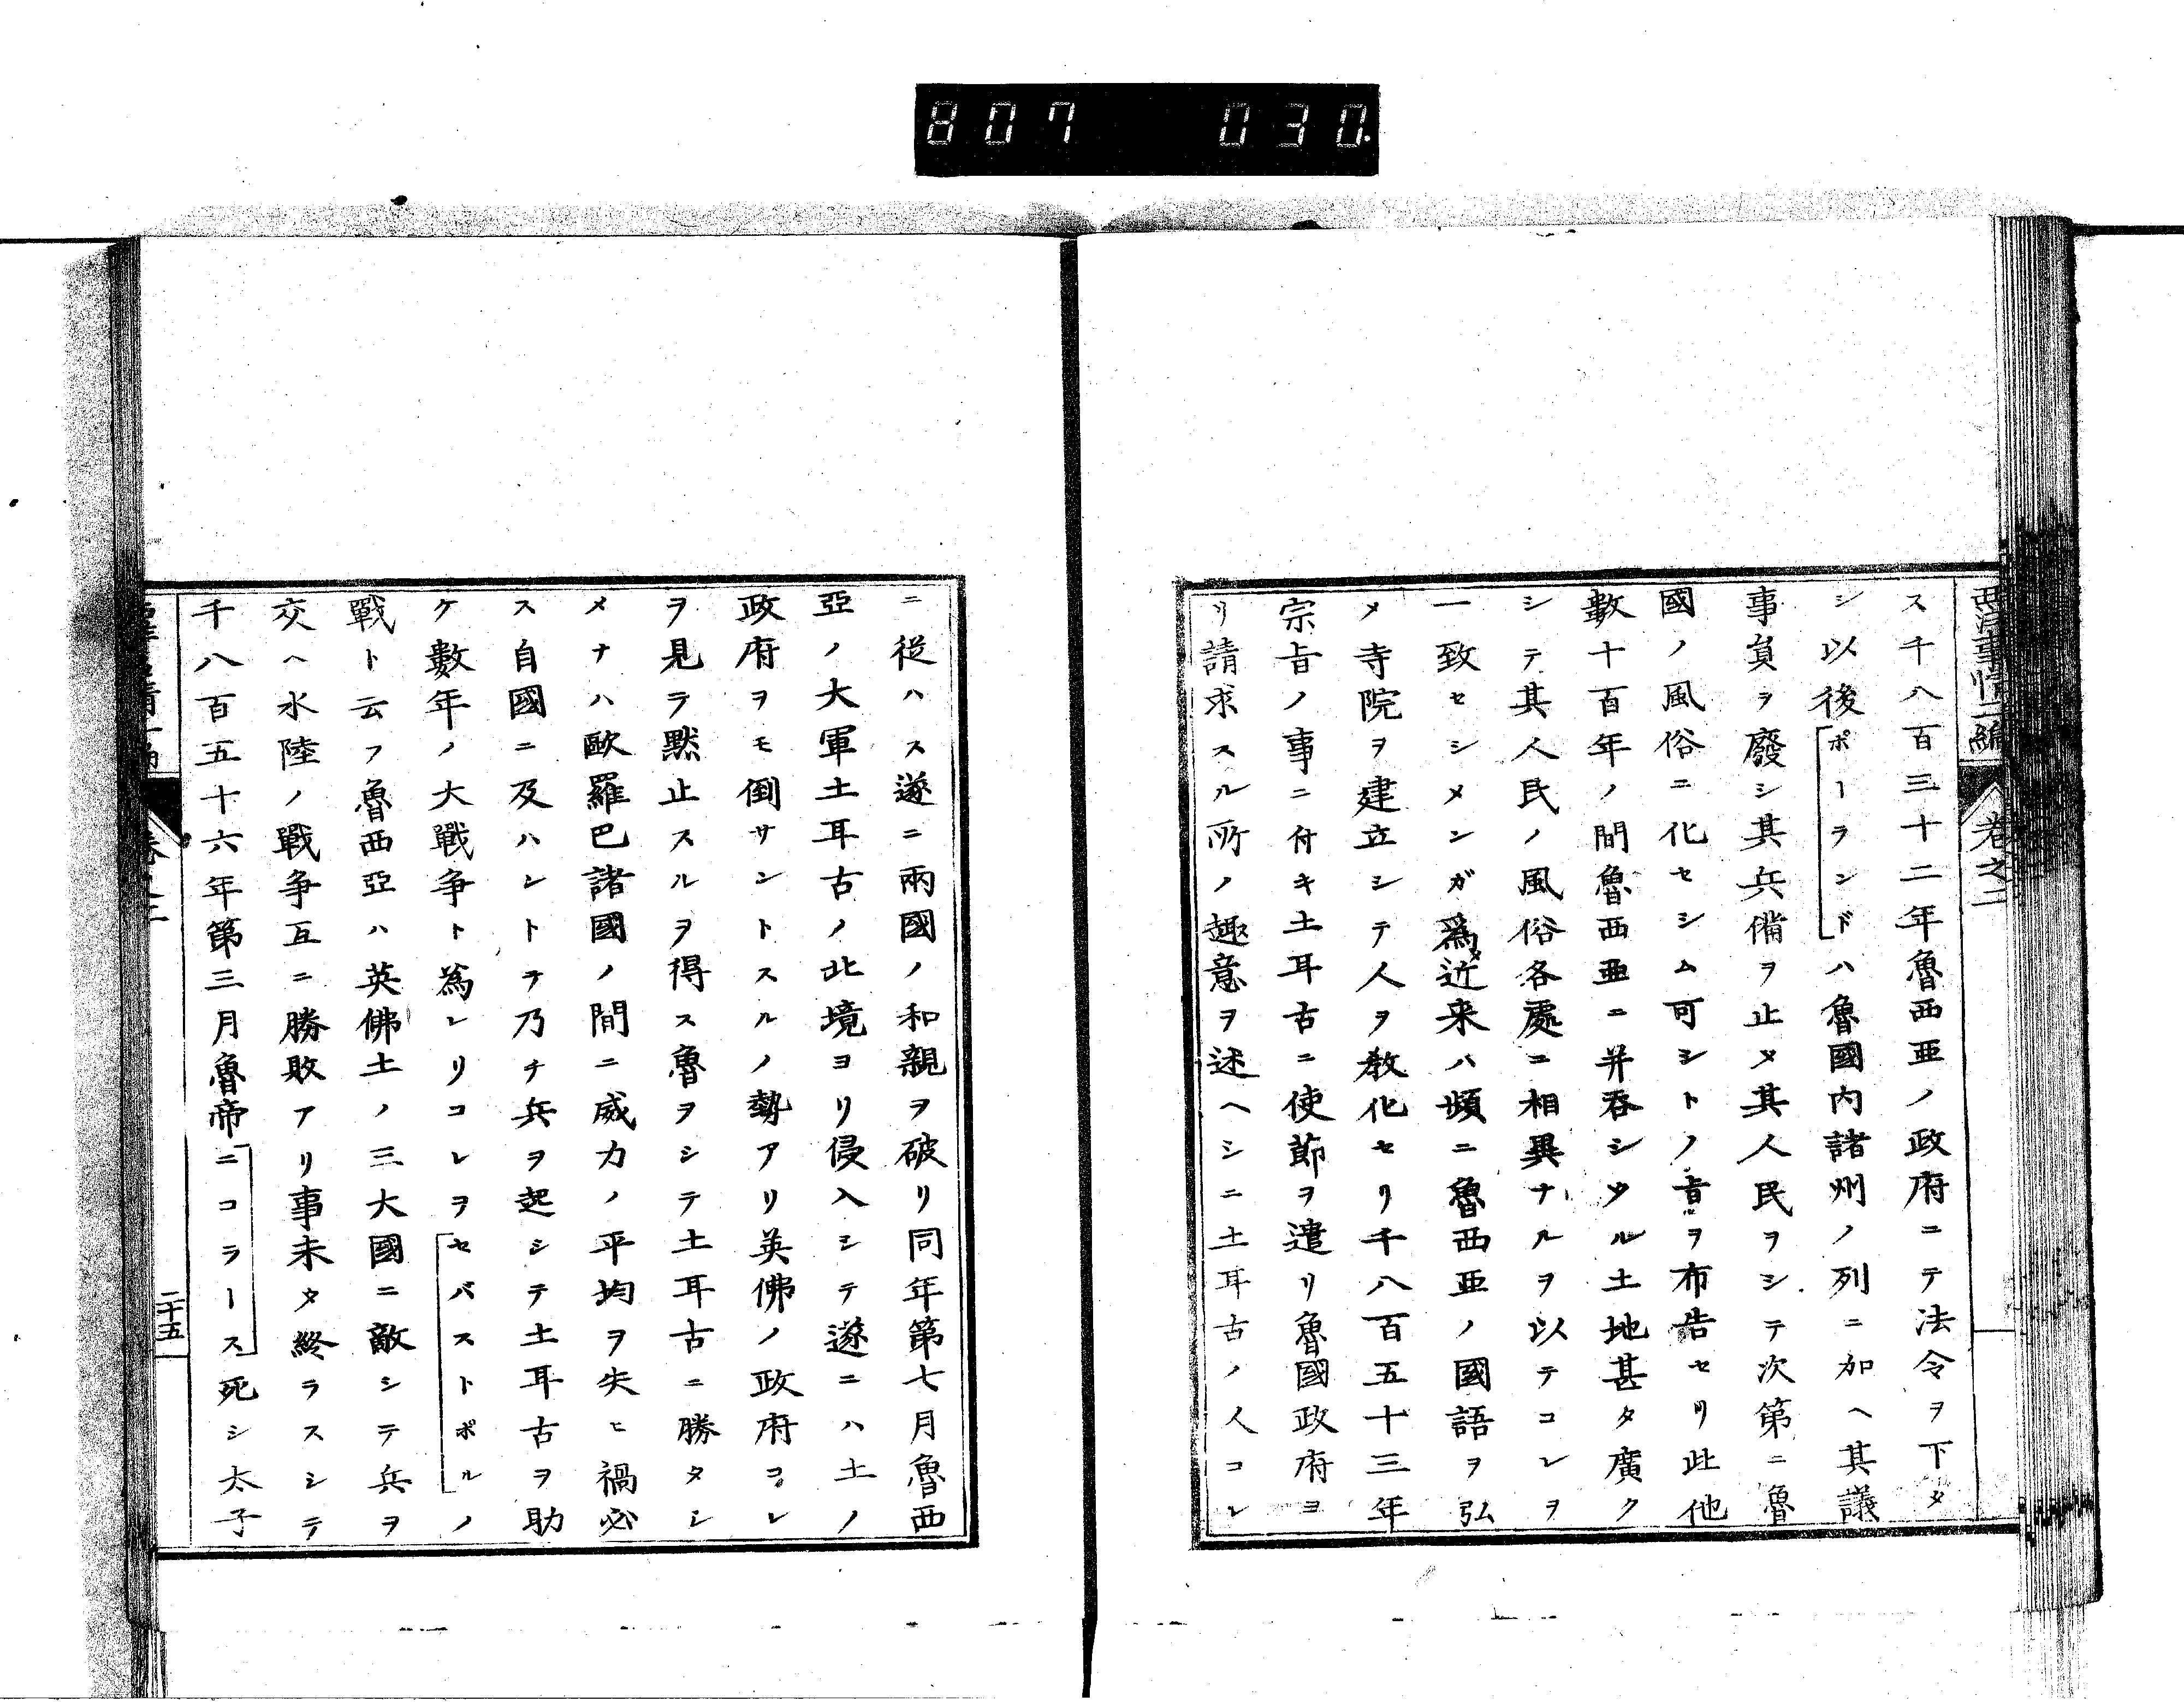 807 030
西洋事情二編 卷之二
ス千八百三十二年魯西亜ノ政府ニテ法令ヲ下タ
シ以後ポーランドハ魯國内諸州ノ列ニ加ヘ其議
事負ヲ廢シ其兵備ヲ止メ其人民ヲシテ次第ニ魯
國ノ風俗ニ化セシム可シトノ旨ヲ布告セリ此他
數十百年ノ間魯西亜ニ并吞シタル土地甚タ廣ク
シテ其人民ノ風俗各處ニ相異ナルヲ以テコレヲ
一致セシメンガ爲メ近来ハ頻ニ魯西亜ノ國語ヲ弘
メ寺院ヲ建立シテ人ヲ教化セリ千八百五十三年
宗旨ノ事ニ付キ土耳古ニ使節ヲ遣リ魯國政府ヨ
リ請求スル所ノ趣意ヲ述ヘシニ土耳古ノ人コレ
ニ從ハス遂ニ兩國ノ和親ヲ破リ同年第七月魯西
亞ノ大軍土耳古ノ北境ヨリ侵入シテ遂ニハ土ノ
政府ヲモ倒サントスルノ勢アリ英佛ノ政府コレ
ヲ見ラ黙止スルヲ得ス魯ヲシテ土耳古ニ勝タシ
メナハ歐羅巴諸國ノ間ニ威力ノ平均ヲ失ヒ禍必
ス自國ニ及ハントテ乃チ兵ヲ起シテ土耳古ヲ助
ケ數年ノ大戰争ト為レリコレヲセバストポルノ
戰ト云フ魯西亞ハ英佛土ノ三大國ニ敵シテ兵ヲ
交ヘ水陸ノ戰争互ニ勝敗アリ事未タ終ラスシテ
千八百五十六年第三月魯帝ニコラース死シ太子
二十五